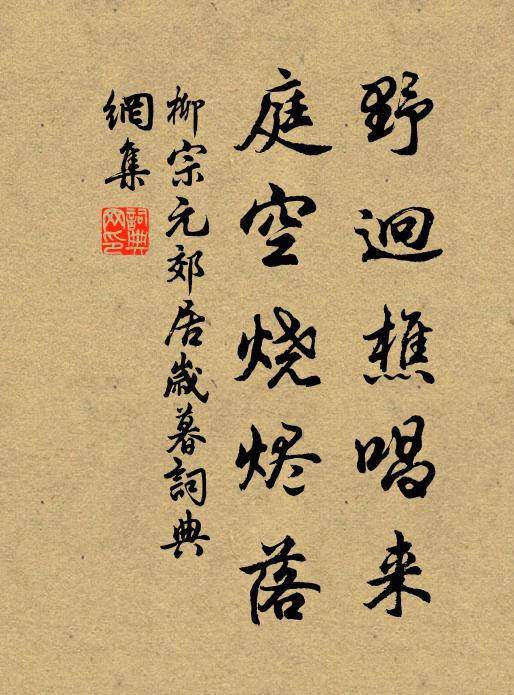 野迥樵唱来
庭空烧烬落
柳宗元郊居歲暮詞典
網集
詞典
网印